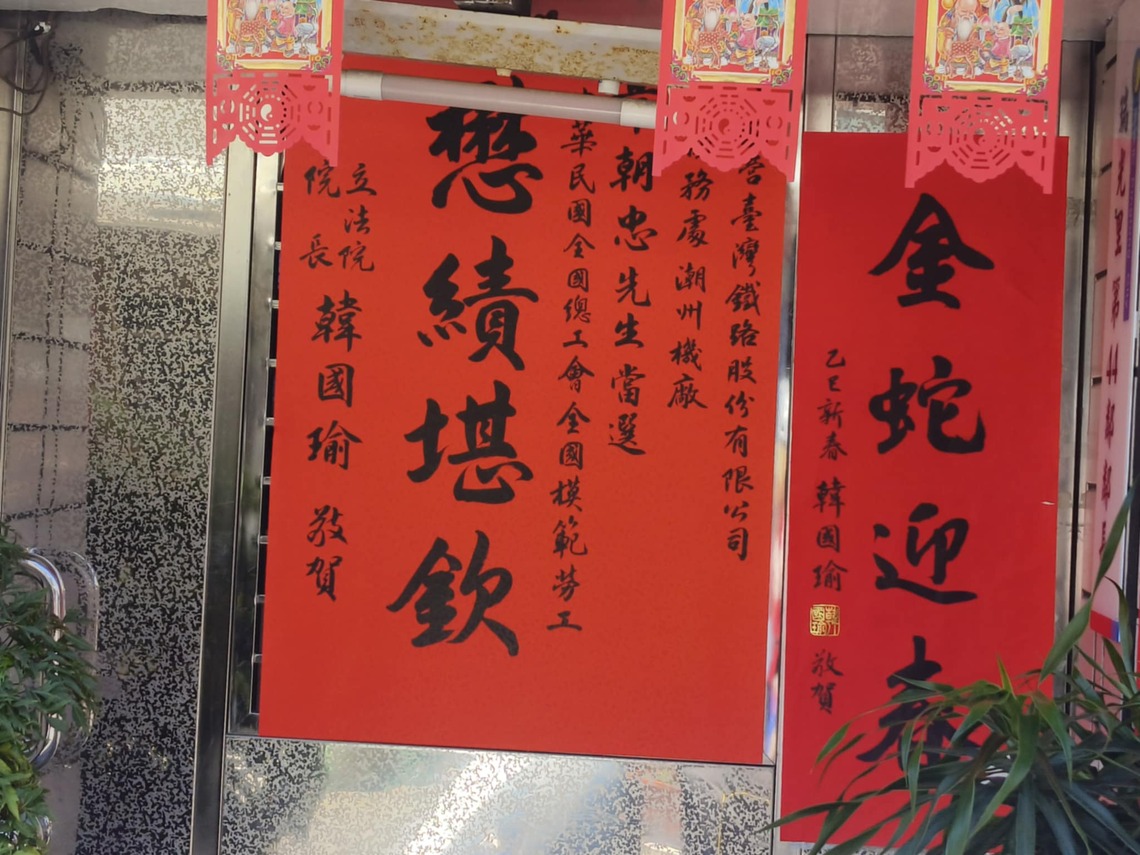 里第44鄰鄰
金蛇迎春
乙巳新春 韓國瑜 敬賀
營臺灣鐵路股份有限公司
務處 潮州機廠
朝忠先生當選
華民國全國總工會全國模範勞工
懋績堪欽
立法院
院長 韓國瑜 敬賀